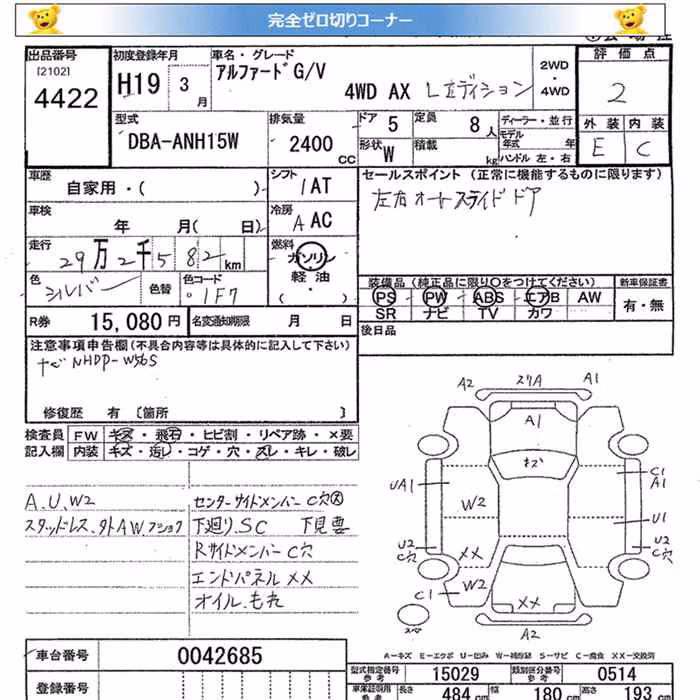 完全ゼロ切りコーナー
出品番号
[2102]
4422
初度登録年月
H19 3月
車名・グレード
アルファードG/V
4WD AX Lエディション
2WD
・
4WD
評価点
2
外装 内装
E C
型式
DBA-ANH15W
排気量
2400 CC
ドア 5
定員 8人
形状 W
積載 kg
ディーラー・並行
モデル年式 年
ハンドル 左・右
車歴
自家用・( )
シフト
1AT
セールスポイント (正常に機能するものに限ります)
左右オートスライドドア
車検
年 月( 日)
冷房
A AC
走行
29万2千582km
燃料
ガソリン
軽・油
・( )
色
シルバー
色替
色コード
1F7
装備品(純正品に限り○をつけてください)
PS PW ABS エアB AW
SR ナビ TV カワ
新車保証書
有・無
R券 15,080円
名変通知期限 月 日
後日品
注意事項申告欄(不具合内容等は具体的に記入して下さい)
ナビNHDP-W56S
修復歴 有 [箇所 ]
検査員
記入欄
FW キズ・飛石・ヒビ割・リペア跡・×要
内装 キズ・汚し・コゲ・穴・スレ・キレ・破レ
A.U.W2
スタッドレス、外AW、
センターサイドメンバー C穴
下廻り.SC 下見要
Rサイドメンバー C穴
エンドパネル XX
オイル.もれ
A2 スリA A1
A1
キズ
UA1
C1
A1
W2
U1
U2
C穴
XX
U2
C穴
C1
W2
XX
スペア
A2
A-キズ E-エクボ U-凹み W-補修跡 S-サビ C-腐食 XX-交換済
車台番号 0042685
登録番号
型式指定番号
参考
15029
類別区分番号
参考
0514
車庫証明用
参考
長さ 484 cm
幅 180 cm
高さ 193 cm